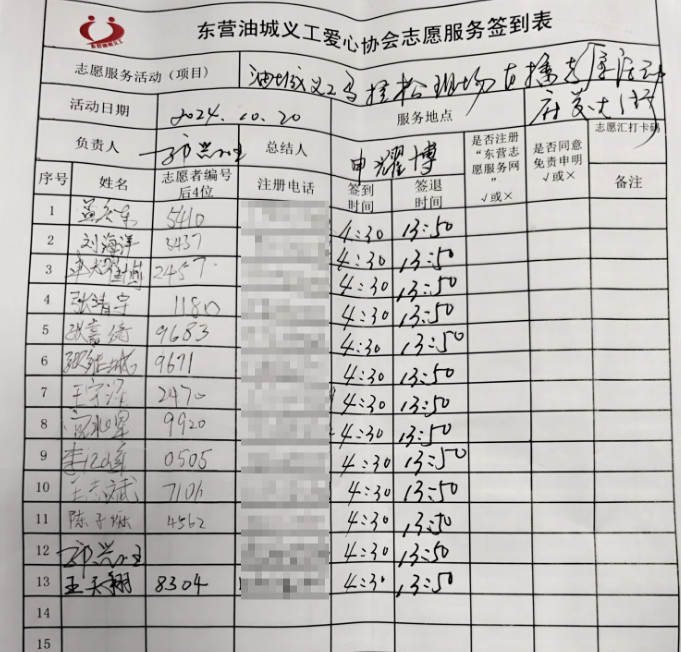 东营油城义工
东营油城义工爱心协会志愿服务签到表
志愿服务活动（项目） 油城义工马拉松现场直播志愿活动
活动日期 2024.10.20 服务地点
负责人 总结人 申耀博 是否注册“东营志愿服务网” √或× 是否同意免责申明 √或× 志愿汇打卡码
序号 姓名 志愿者编号后4位 注册电话 签到时间 签退时间 备注
1 5410 4:30 13:50
2 刘海洋 3437 4:30 13:50
3 2457 4:30 13:50
4 张靖宇 1180 4:30 13:50
5 9683 4:30 13:50
6 9671 4:30 13:50
7 2470 4:30 13:50
8 9920 4:30 13:50
9 0505 4:30 13:50
10 王志斌 7106 4:30 13:50
11 陈子 4562 4:30 13:50
12 4:30 13:50
13 王天翔 8304 4:30 13:50
14
15